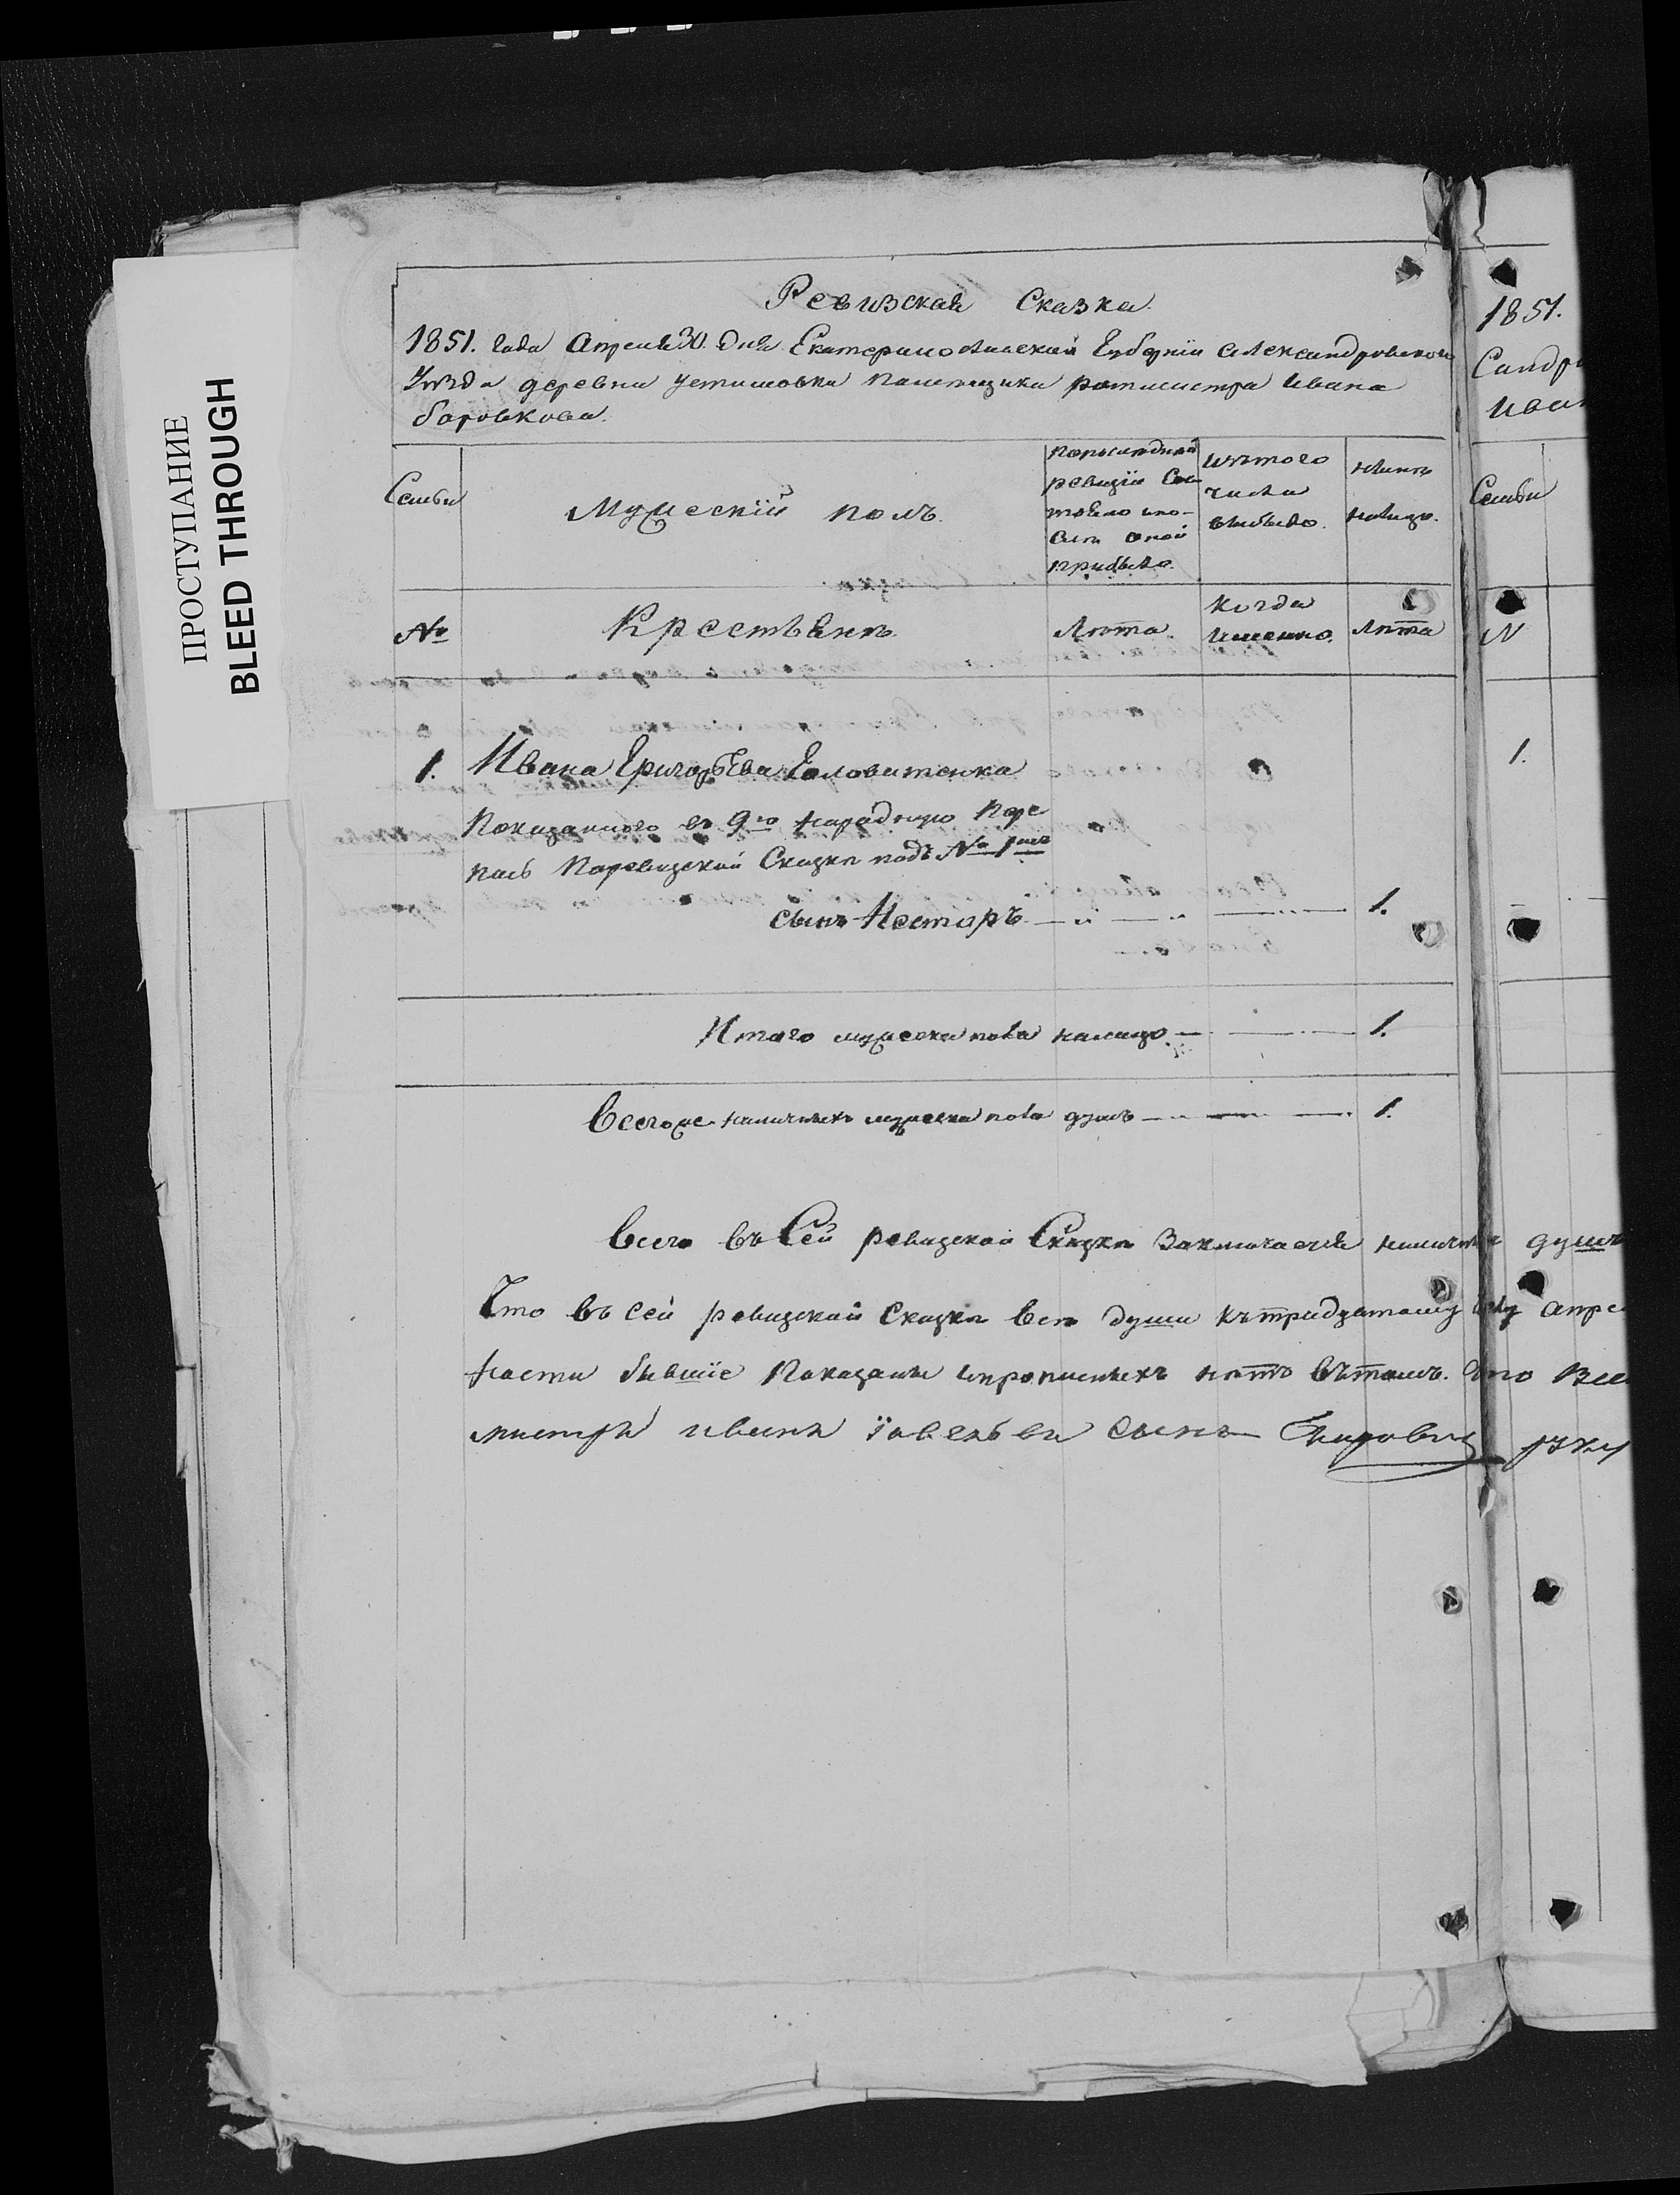 ПРОСТУПАНИЕ
BLEED THROUGH
Ревизская Сказка.
1851. года Апреля 30. дня. Екатеринославской Губернiи Александровского
Уезда деревни Устимовки помещика ротмистра Ивана
Боровкова.
Семьи
Мужескiй полъ.
Попоследней
ревизiи Сос
тояло ипо-
слѣ оной
прибыло.
Изътого
числа
выбыло.
нынѣ
налицо.
№
Крестьянъ
Лѣта.
Когда
Именно.
Лѣта
1. Ивана Григорьева Головатенка
Показанного въ 9ю народную Пере
пись Поревизской Сказки подъ № 1мъ
сынъ Несторъ 1.
Итого мужеска пола налицо. 1.
Всегоже наличныхъ мужеска пола душъ 1.
Всего въ Сей ревизской Сказкѣ Заключается наличныхъ душъ
Что въ сей ревизской Сказкѣ всѣ души къ тридцатому Апре
ности бывшiе Показаны ипрописныхъ нѣтъ вътомъ. Что
мистръ иванъ сынъ
1851.
Сандр
Иван
Семьи
N
1.